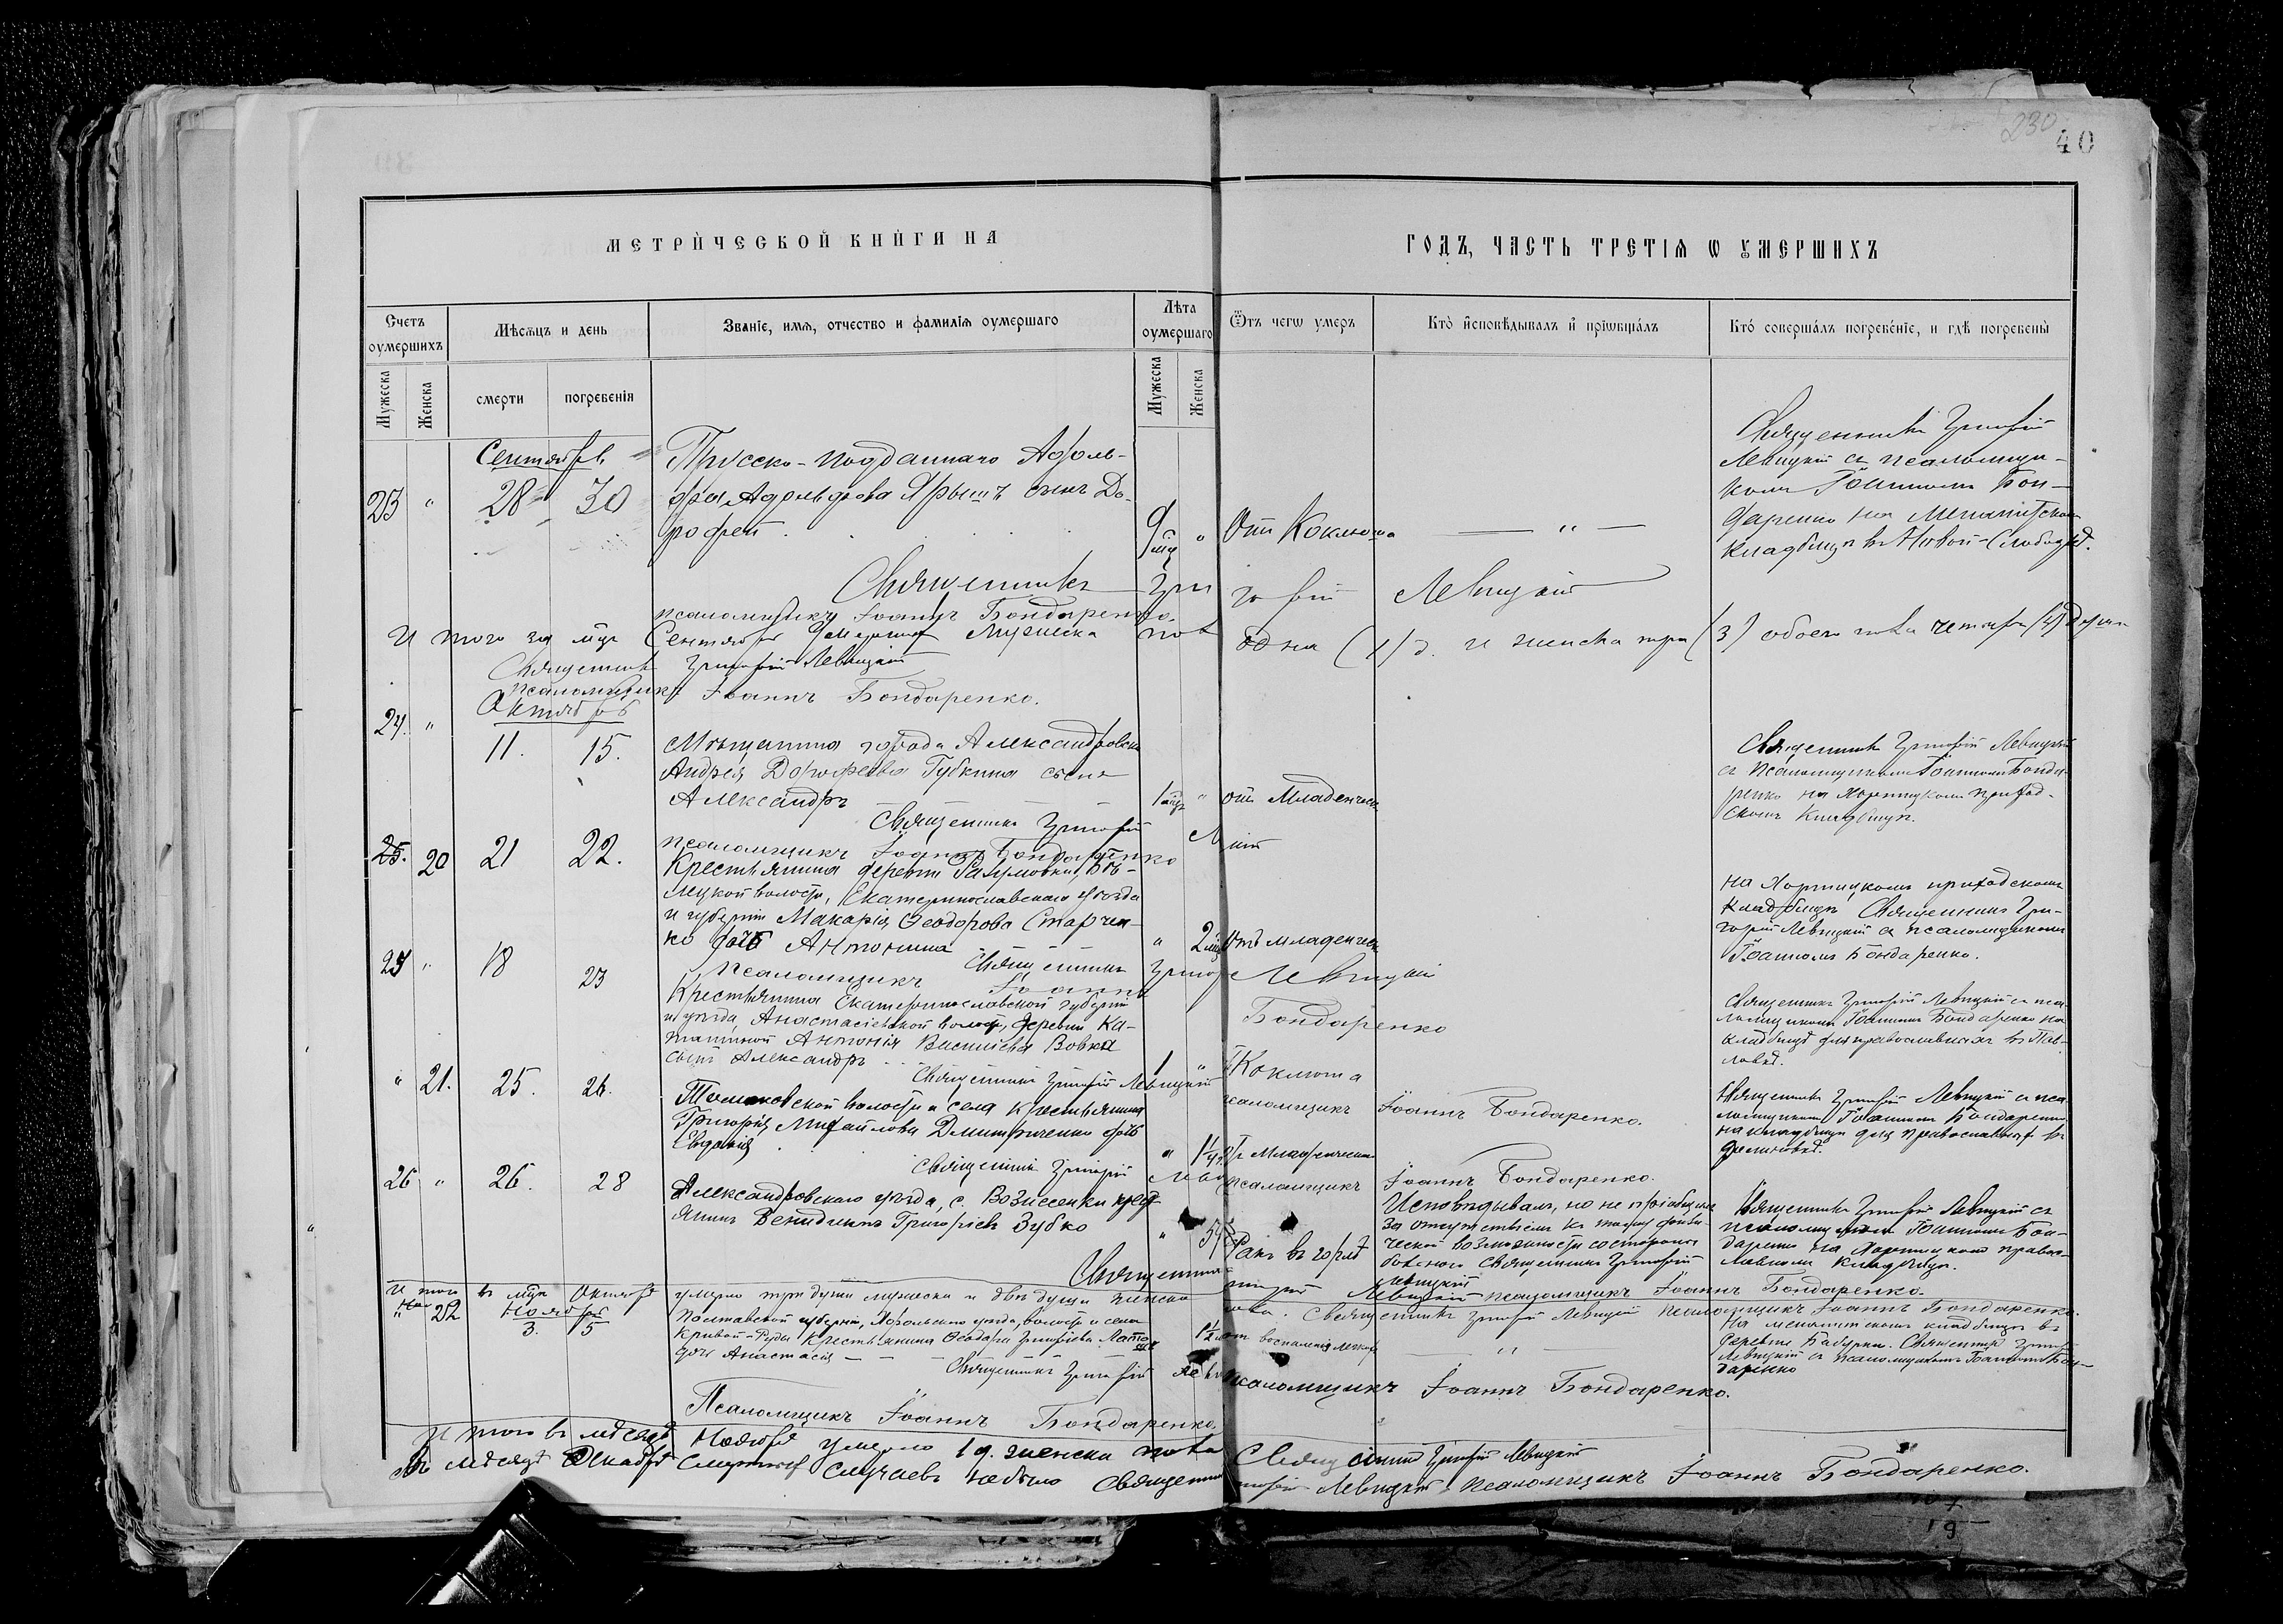 230
40
МЕТРИЧЕСКОЙ КНИГИ НА
ГОДЪ, ЧАСТЬ ТРЕТІЯ Ѡ ОУМЕРШИХЪ
Счетъ оумершихъ
Мѣсяцъ и день
Званіе, имя, отчество и фамилія оумершаго
Лѣта оумершаго
Ѿтъ чегѡ умеръ
Кто исповѣдывалъ и пріѡбщалъ
Кто совершалъ погребеніе, и гдѣ погребены
Мужеска
Женска
смерти
погребенія
Мужеска
Женска
Сентябрь
23 " 28 30
Прусско-подданнаго Адоль-
фа Адольфова Ярышъ сынъ До-
рофей
9 мц "
Отъ Коклюша
— " —
Священникъ Григорій
Левицкій съ псаломщи-
комъ Іоанномъ Бон-
даренко на Менонитскомъ
кладбищѣ въ Новой-Слободкѣ.
Священникъ Григорій Левицкій
псаломщикъ Іоаннъ Бондаренко.
И того за мцъ Сентябрь умершихъ мужеска пола одна (1) д. и женска три (3) обоего пола четыре (4) души
Священникъ Григорій Левицкій
псаломщикъ Іоаннъ Бондаренко.
Октябрь
24. " 11. 15.
Мѣщанина города Александровска
Андрея Дорофеева Губкина сынъ
Александръ
1 мцъ "
отъ Младенческ.
Священникъ Григорій Левицкій
съ псаломщикомъ Іоанномъ Бонда-
ренко на Хортицкомъ приход-
скомъ кладбищѣ.
Священникъ Григорій
псаломщикъ Іоаннъ Бондаренко
25. 20 21 22.
Крестьянина деревни Разумовки, Бѣ-
ленцкой волости, Екатеринославскаго уѣзда
и губерніи Макарія Ѳеодорова Старчен-
ко дочь Антонина
" 2 мц
Отъ младенческ
на Хортицкомъ приходскомъ
кладбищѣ Священникъ Гри-
горій Левицкій съ псаломщикомъ
Іоанномъ Бондаренко.
Священникъ Григор Левицкій
псаломщикъ Іоаннъ Бондаренко
25 " 18 23
Крестьянина Екатеринославской губерніи
и уѣзда, Анастасіевской волости, деревни Ка-
Антонія Василіева Вовка
сынъ Александръ
1 "
Коклюша
Священникъ Григорій Левицкій съ пса-
ломщикомъ Іоанномъ Бондаренко на
кладбищѣ для православныхъ въ Пав-
ловкѣ.
Священникъ Григорій Левицкій
псаломщикъ Іоаннъ Бондаренко.
" 21. 25. 26.
Томаковской волости и села крестьянина
Григорія Михайлова Дмитриченко дочь
Евдокія
Младенческ
Священникъ Григорій Левицкій съ пса-
ломщикомъ Іоанномъ Бондаренко
на кладбищѣ для православныхъ въ
Священникъ Григорій
псаломщикъ Іоаннъ Бондаренко.
26 " 26. 28
Александровскаго уѣзда, с. Вознесенки крест-
янинъ Венидиктъ Григорьевъ Зубко
Ракъ въ горлѣ
Исповѣдывалъ, но не пріобщилъ
за отсутствіемъ къ тому физи-
ческой возможности со стороны
больного Священникъ Григорій
Левицкій
Священникъ Григорій Левицкій съ
псаломщикомъ Іоанномъ Бон-
даренко на Хортицкомъ право-
славномъ кладбищѣ.
Священникъ
Левицкій псаломщикъ Іоаннъ Бондаренко.
И того въ мцѣ Октябрѣ умерло три души мужеска и двѣ души женска
пола. Священникъ Григорій Левицкій псаломщикъ Іоаннъ Бондаренко.
Ноябрь
" 22 3. 5
Полтавской губерніи, Хорольскаго уѣзда, волости и села
Кривой-Руды крестьянина Ѳеодора Григорьева
дочь Анастасія
1½
отъ воспаленія легкихъ
— " —
На менонитскомъ кладбищѣ въ
деревнѣ Бабурки. Священникъ Григорій
Левицкій съ псаломщикомъ Іоанномъ Бон-
даренко
Священникъ Григорій
псаломщикъ Іоаннъ Бондаренко.
Псаломщикъ Іоаннъ Бондаренко.
И того въ мѣсяцѣ Ноябрѣ умерло 1 д. женска пола Священникъ Григорій Левицкій
Въ мѣсяцѣ Декабрѣ смертныхъ случаевъ не было Священникъ Григорій Левицкій псаломщикъ Іоаннъ Бондаренко.
19